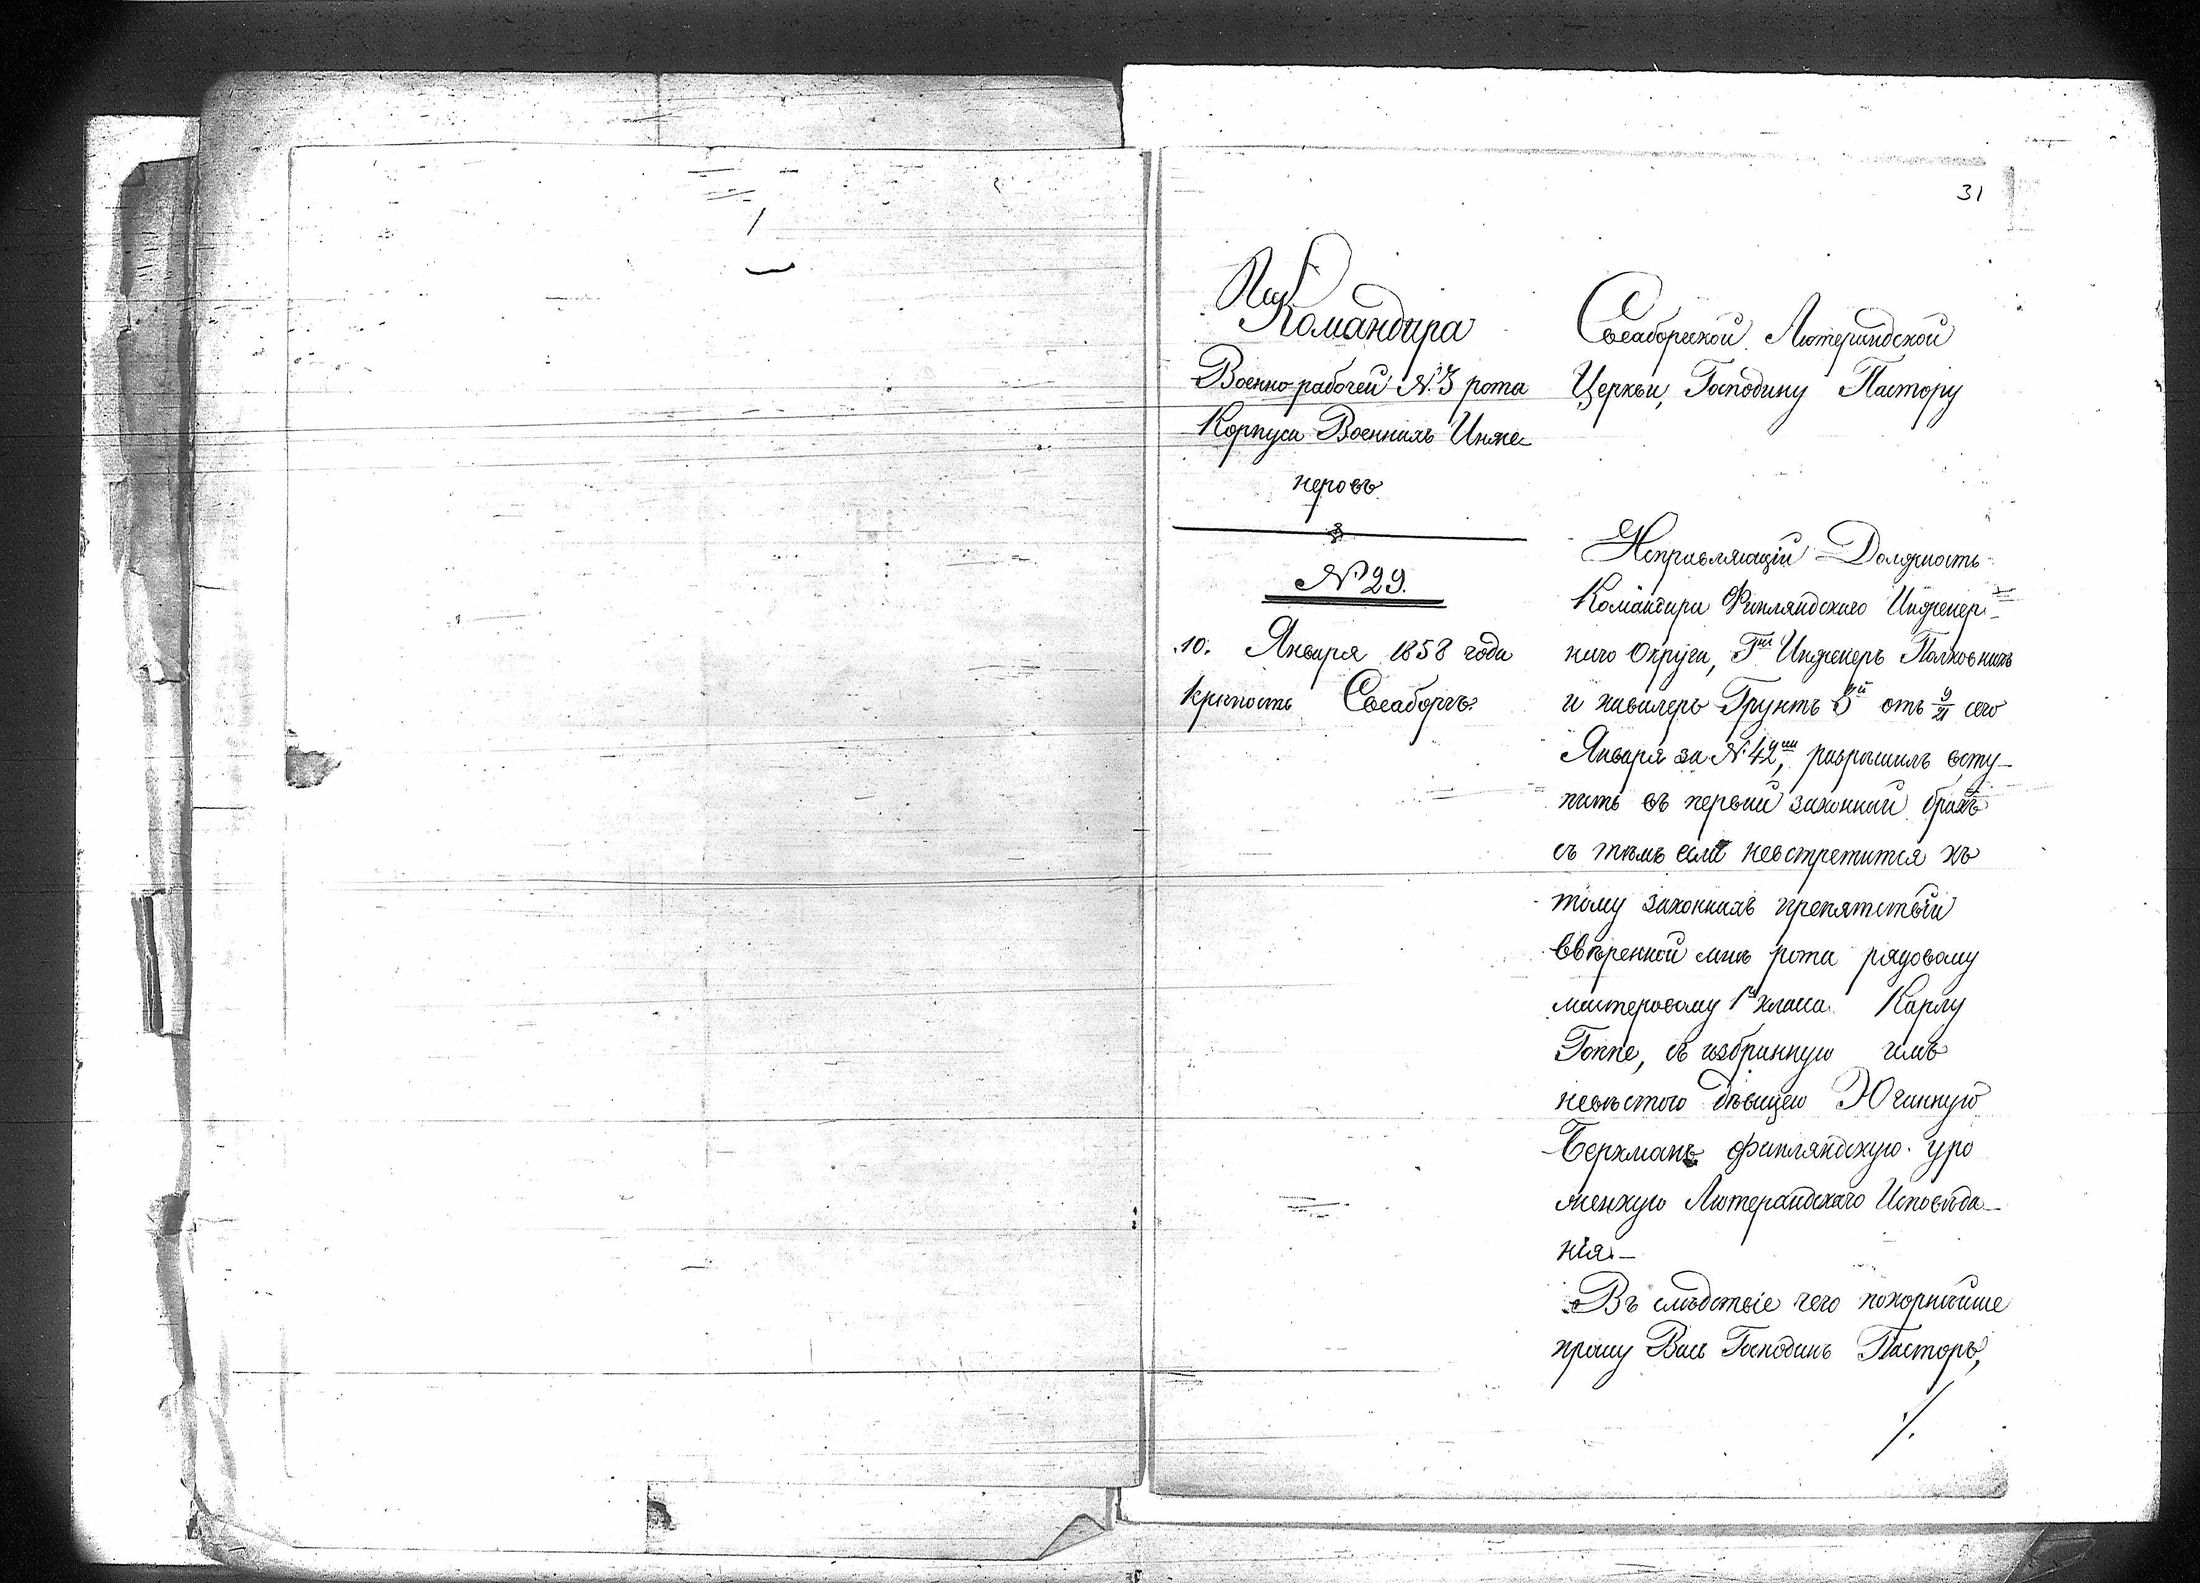 31
Командира
Военно рабочей №3 рота
Корпуса Военныхъ Инже-
неровъ
№ 29.
10. Января 1858 года
крѣпость Свеаборгъ.
Свеаборгской Лютерандской
Церкьи, Господину Пастору
Исправляющій Должность
Командира Финляндскаго Инженер-
наго Округа, Гнъ Инженеръ Полковникъ
и кавалеръ Грунтъ 3й отъ 9/21 сего
Января за №42, разрѣшилъ всту-
пить въ первый законный бракъ
съ тѣмъ если невстретится къ
тому законныхъ препятствій
ввѣренной мнѣ рота рядовому
мастеровому 1го класса Карлу
Гоппе, съ избранную имъ
невѣстою дѣвицею Юганную
Берхманъ финляндскую уро
женкую Лютерандскаго Исповѣда-
нія.-
Въ слѣдствіе чего покорнѣйше
прошу Васъ Господинъ Пасторъ,
./.